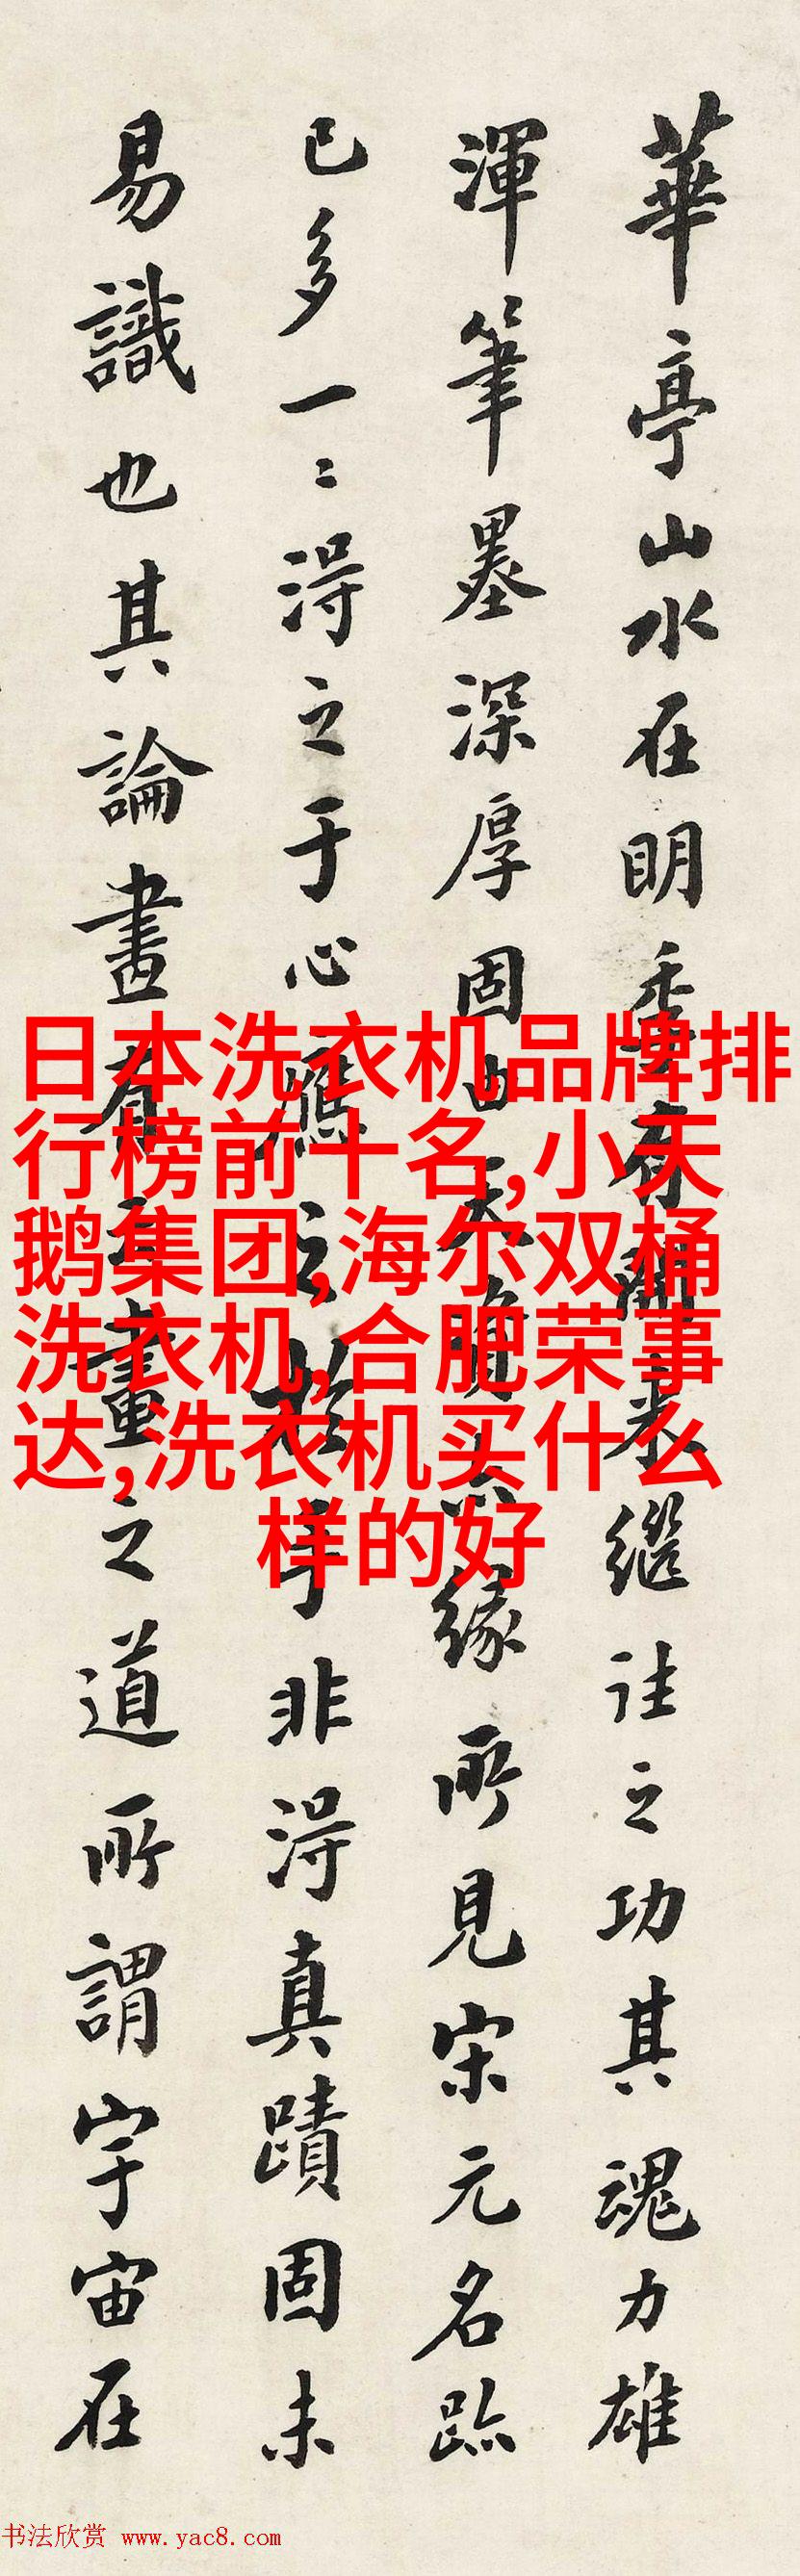 華亭山水在明季有開来繼往之功其魂力雄
渾筆墨深厚固由天資亦緣所見宋元名跡
已多一〻得之于心應之於手非得真蹟固未
易識也其論畫有云畫之道所謂宇宙在
日本洗衣机品牌排
行榜前十名,小天
鹅集团,海尔双桶
洗衣机,合肥荣事
达,洗衣机买什么
样的好
书法欣赏 www.yac8.com